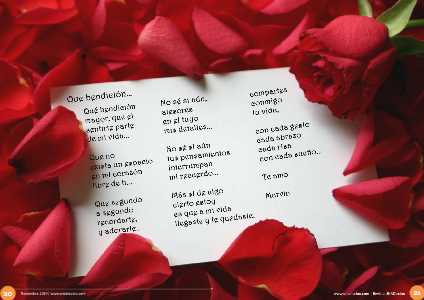 Que bendición...
Qué bendición
mayor, que el
sentirte parte
de mi vida...
Que no
exista un espacio
en mi corazón
libre de ti...
Que segundo
a segundo
recordarte,
y adorarte.
No sé si aún,
aisceme
en el tuyo
mis detalles...
No sé si aún
tus pensamientos
interrumpan
mi recuerdo...
Más si de algo
cierto estoy
es que a mi vida
llegaste y te quedaste.
compartes
conmigo
tu vida,
con cada gesto
cada abrazo
cada risa
con cada sueño...
Te amo
20
Noviembre 2014
21